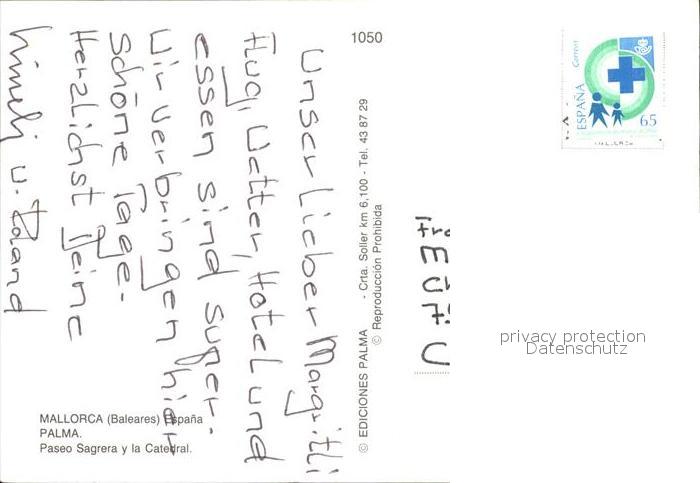 Unser lieber Margritli
Flug, Wetter, Hotel und
Essen sind super.
Wir verbringen hier
Schöne Tage.
Herzlichst Deine
u.
MALLORCA (Baleares) España
PALMA.
Paseo Sagrera y la Catedral.
1050
© EDICIONES PALMA - Crta. Soller km 6,100 - Tel. 43 87 29
© Reproducción Prohibida
ESPAÑA
Correos
65
privacy protection
Datenschutz